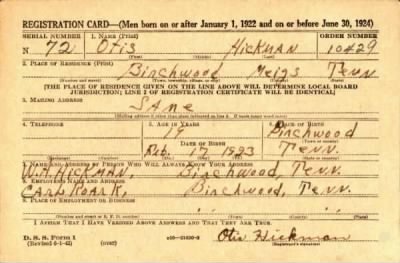 REGISTRATION CARD—(Men born on or after January 1, 1922 and on or before June 30, 1924)
SERIAL NUMBER 1. NAME (Print) ORDER NUMBER
N 72 Otis Hickman 10429
(First) (Middle) (Last)
2. PLACE OF RESIDENCE (Print)
Birchwood Meigs Tenn
(Number and street) (Town, township, village, or city) (County) (State)
[THE PLACE OF RESIDENCE GIVEN ON THE LINE ABOVE WILL DETERMINE LOCAL BOARD
JURISDICTION; LINE 2 OF REGISTRATION CERTIFICATE WILL BE IDENTICAL]
3. MAILING ADDRESS
SAME
4. TELEPHONE 5. AGE IN YEARS 6. PLACE OF BIRTH
19 Birchwood
DATE OF BIRTH
Feb. 17 1923 Tenn.
7. NAME AND ADDRESS OF PERSON WHO WILL ALWAYS KNOW YOUR ADDRESS
W.A. HICKMAN, Birchwood, Tenn.
8. EMPLOYER'S NAME AND ADDRESS
CARL ROARK, Birchwood, Tenn.
9. PLACE OF EMPLOYMENT OR BUSINESS
(Number and street or R. F. D. number) (Town) (County) (State)
I AFFIRM THAT I HAVE VERIFIED ABOVE ANSWERS AND THAT THEY ARE TRUE.
D. S. S. Form 1
(Revised 6-1-42) (over) Otis Hickman
(Registrant's signature)